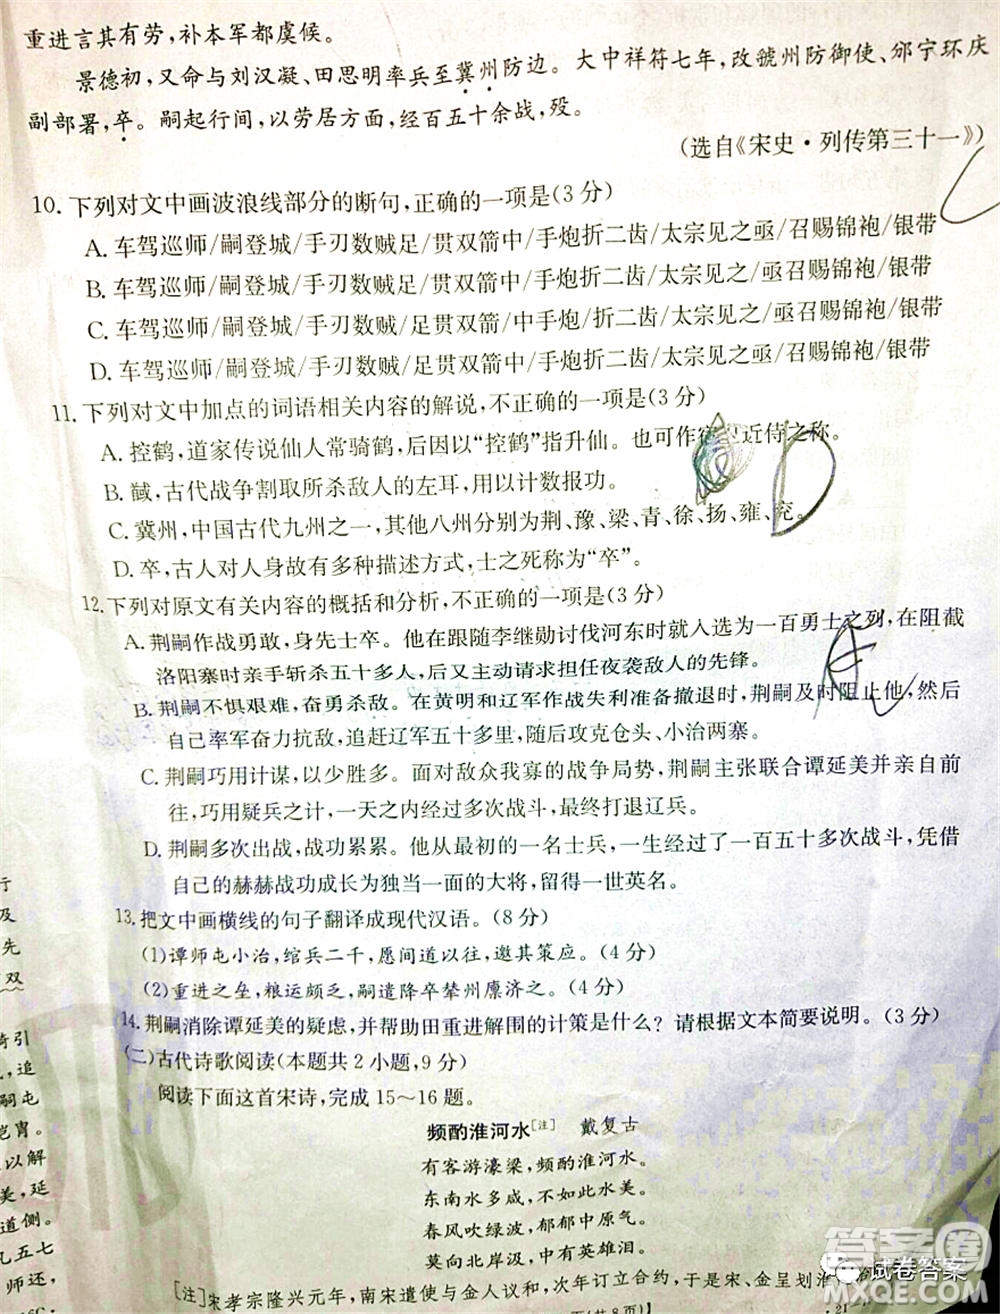 重进言其有劳，补本军都虞候。
景德初，又命与刘汉凝、田思明率兵至冀州防边。大中祥符七年，改虢州防御使、邠宁环庆
副部署，卒。嗣起行间，以劳居方面，经百五十余战，殁。
（选自《宋史·列传第三十一》）
10.下列对文中画波浪线部分的断句，正确的一项是(3分)
A.车驾巡师/嗣登城/手刃数贼足/贯双箭中/手炮折二齿/太宗见之亟/召赐锦袍/银带
B.车驾巡师/嗣登城/手刃数贼足/贯双箭中/手炮折二齿/太宗见之/亟召赐锦袍/银带
C.车驾巡师/嗣登城/手刃数贼/足贯双箭/中手炮/折二齿/太宗见之/亟召赐锦袍/银带
D.车驾巡师/嗣登城/手刃数贼/足贯双箭/中手炮折二齿/太宗见之亟/召赐锦袍/银带
11.下列对文中加点的词语相关内容的解说，不正确的一项是(3分)
A.控鹤，道家传说仙人常骑鹤，后因以“控鹤”指升仙。也可作宿卫近侍之称。
B.馘，古代战争割取所杀敌人的左耳，用以计数报功。
C.冀州，中国古代九州之一，其他八州分别为荆、豫、梁、青、徐、扬、雍、兖。
D.卒，古人对人身故有多种描述方式，士之死称为“卒”。
12.下列对原文有关内容的概括和分析，不正确的一项是(3分)
A.荆嗣作战勇敢，身先士卒。他在跟随李继勋讨伐河东时就入选为一百勇士之列，在阻截
洛阳寨时亲手斩杀五十多人，后又主动请求担任夜袭敌人的先锋。
B.荆嗣不惧艰难，奋勇杀敌。在黄明和辽军作战失利准备撤退时，荆嗣及时阻止他，然后
自己率军奋力抗敌，追赶辽军五十多里，随后攻克仓头、小治两寨。
C.荆嗣巧用计谋，以少胜多。面对敌众我寡的战争局势，荆嗣主张联合谭延美并亲自前
往，巧用疑兵之计，一天之内经过多次战斗，最终打退辽兵。
D.荆嗣多次出战，战功累累。他从最初的一名士兵，经历了一百五十多次战斗，凭借
自己的赫赫战功成长为独当一面的大将，留得一世英名。
13.把文中画横线的句子翻译成现代汉语。(8分)
(1)谭师屯小治，绾兵二千，愿间道以往，邀其策应。(4分)
(2)重进之垒，粮运颇乏，嗣遣降卒辇州廪济之。(4分)
14.荆嗣消除谭延美的疑虑，并帮助田重进解围的计策是什么？请根据文本简要说明。(3分)
(二)古代诗歌阅读(本题共2小题，9分)
阅读下面这首宋诗，完成15～16题。
频酌淮河水[注] 戴复古
有客游濠梁，频酌淮河水。
东南水多咸，不如此水美。
春风吹绿波，郁郁中原气。
莫向北岸汲，中有英雄泪。
[注]宋孝宗隆兴元年，南宋遣使与金人议和，次年订立合约，于是宋、金呈划淮
行
及
先
双
奇引
追
嗣屯
铠胄
以解
美，延
道侧。
五七
师还，
页(共8页)
答案圈
试卷答案
MXQE.COM